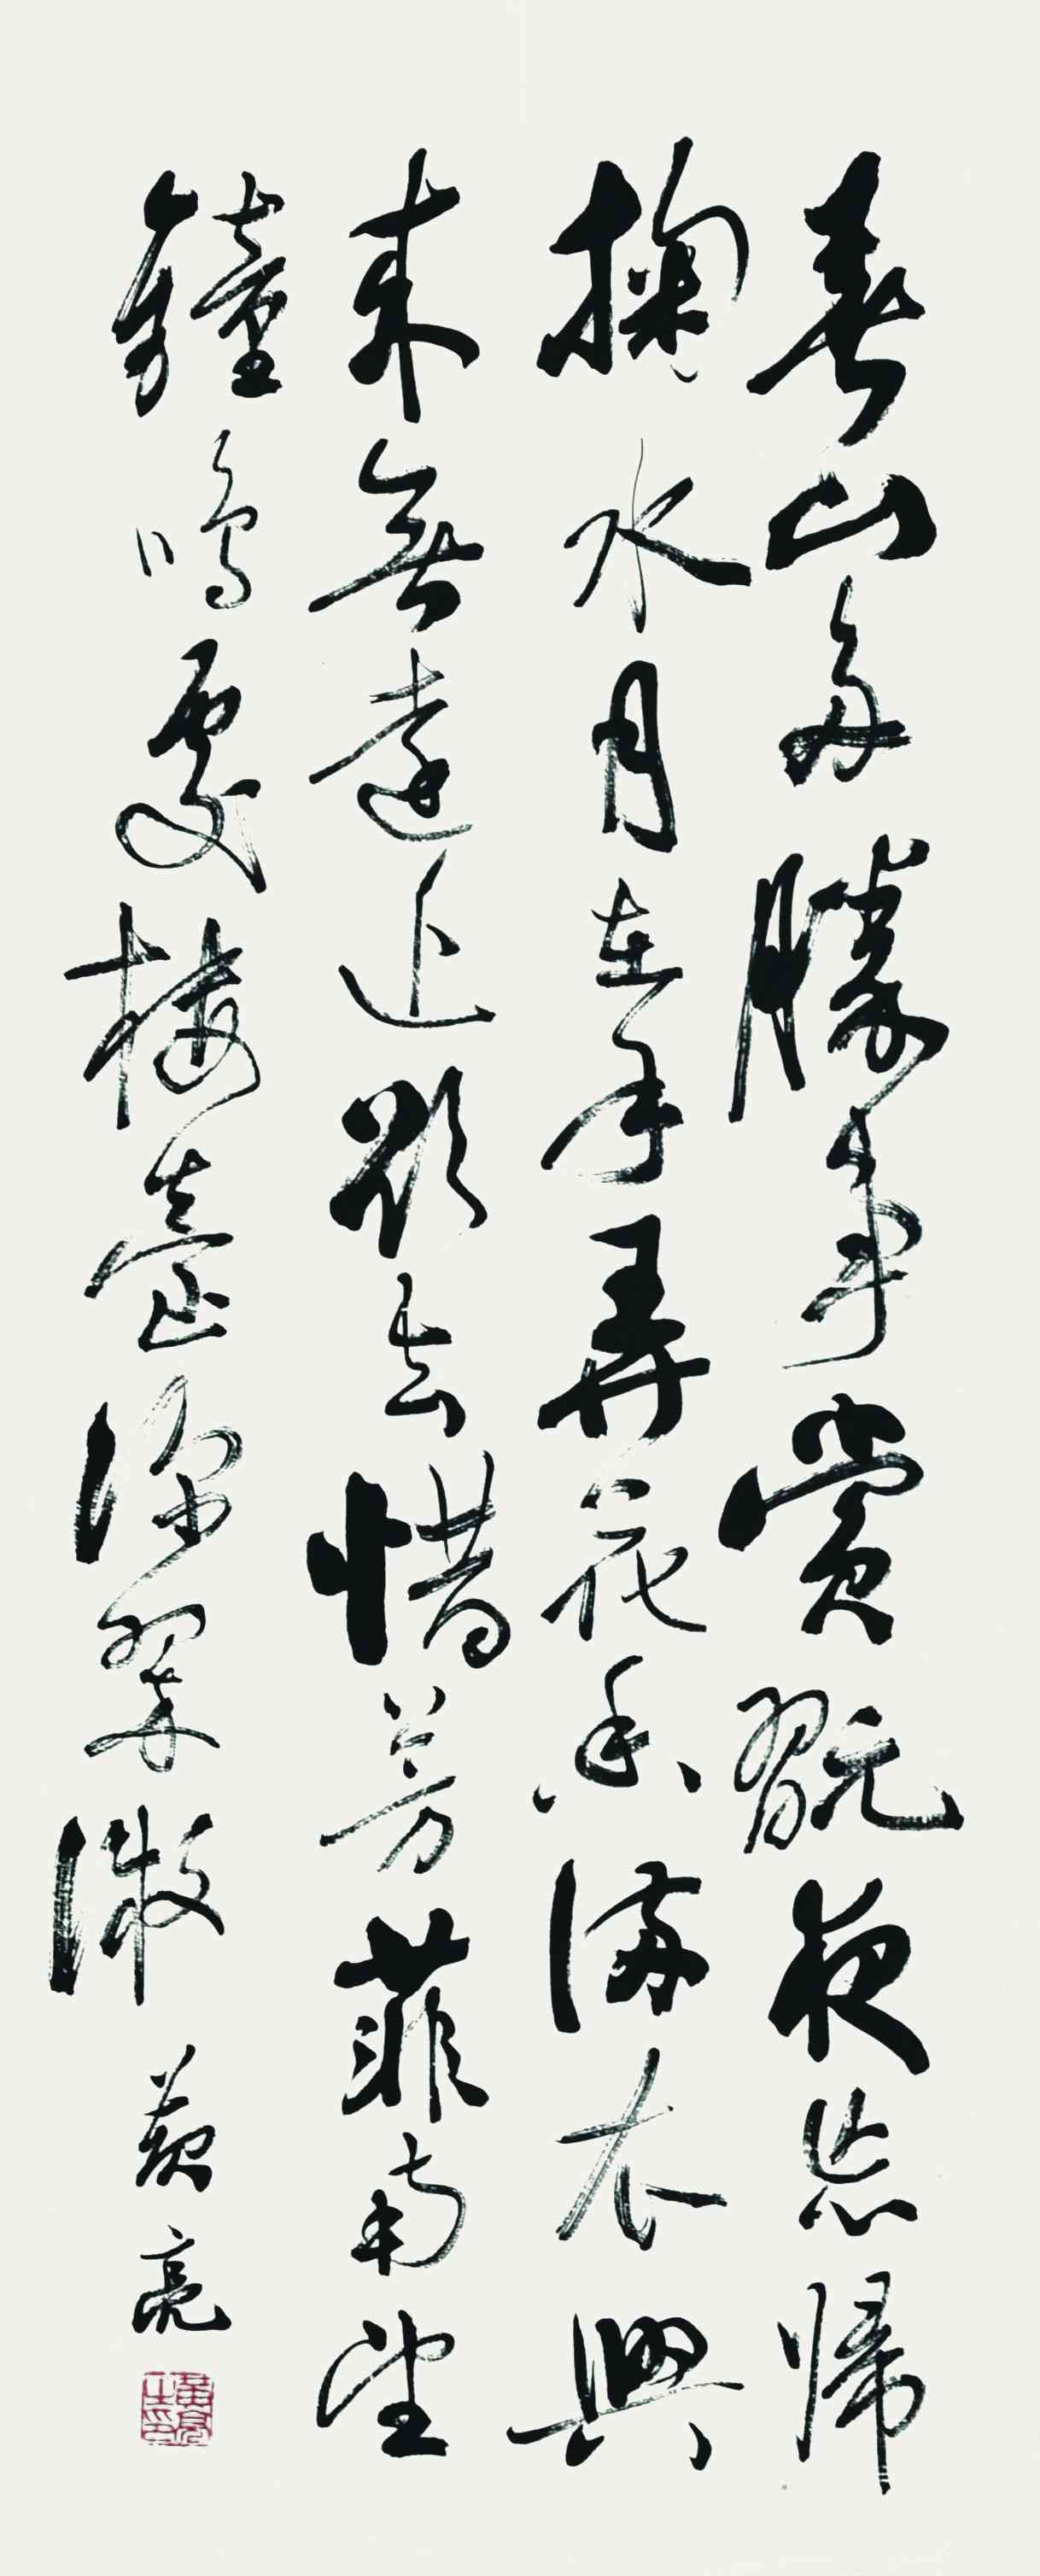 春山多勝事賞翫夜忘歸
掬水月在手弄花香滿衣興
來無遠近欲去惜芳菲南望
鐘鳴處樓臺深翠微 黃亮
黃亮之印